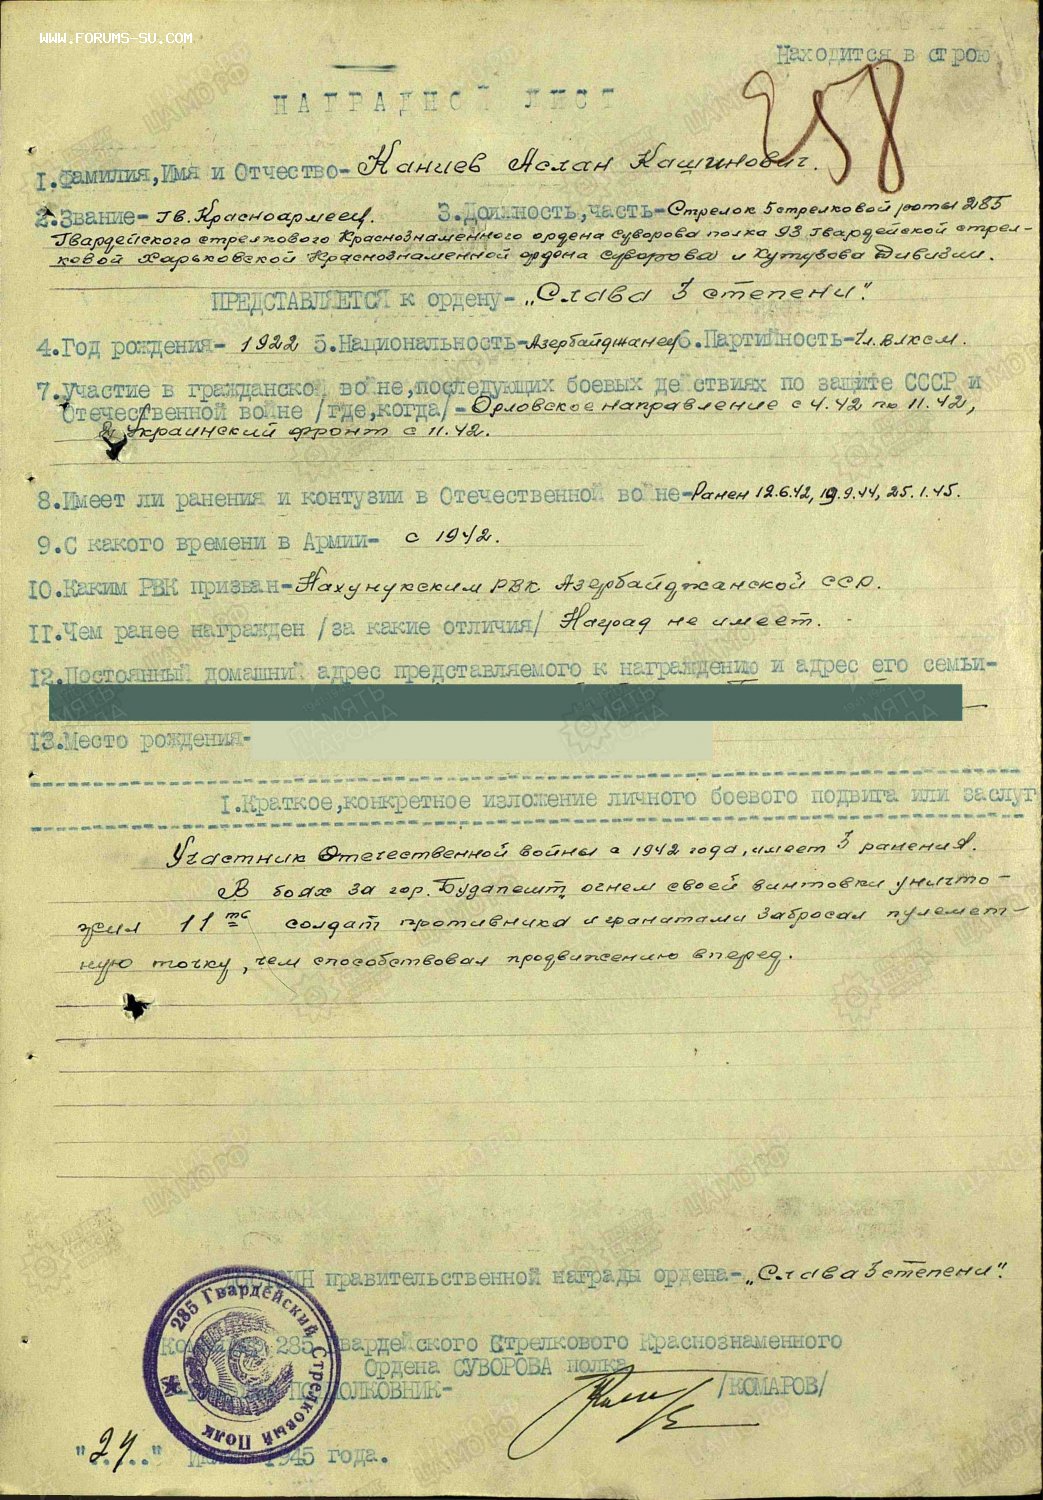 WWW.FORUMS-SU.COM
Находится в строю
258
НАГРАДНОЙ ЛИСТ
1.Фамилия,Имя и Отчество- Каниев Аслан Кашинович.
2.Звание- гв. Красноармеец. 3.Должность,часть- Стрелок 5 стрелковой роты 285
Гвардейского стрелкового Краснознаменного ордена Суворова полка 93 гвардейской стрел-
ковой Харьковской Краснознаменной ордена Суворова и Кутузова Дивизии.
ПРЕДСТАВЛЯЕТСЯ к ордену- „Слава 3 степени".
4.Год рождения- 1922 5.Национальность- Азербайджанец 6.Партийность- Чл. ВЛКСМ.
7.Участие в гражданской войне,последующих боевых действиях по защите СССР и
Отечественной войне /где,когда/- Орловское направление с 4.42 по 11.42,
2 Украинский фронт с 11.42.
8.Имеет ли ранения и контузии в Отечественной войне- Ранен 12.6.42, 19.9.44, 25.1.45.
9.С какого времени в Армии- с 1942.
10.Каким РВК призван- Нахунукским РВК Азербайджанской ССР.
11.Чем ранее награжден /за какие отличия/ Наград не имеет.
12.Постоянный домашний адрес представляемого к награждению и адрес его семьи-
13.Место рождения-
1.Краткое,конкретное изложение личного боевого подвига или заслуг
Участник Отечественной войны с 1942 года, имеет 3 ранения.
В боях за гор. Будапешт, огнем своей винтовки уничто-
жил 11 ть солдат противника и гранатами забросал пулемет-
ную точку, чем способствовал продвижению вперед.
ДОСТОИН правительственной награды ордена- „Слава 3 степени".
Командир 285 Гвардейского Стрелкового Краснознаменного
Ордена СУВОРОВА полка
ПОДПОЛКОВНИК- /КОМАРОВ/
285 Гвардейский Стрелковый Полк
"24.." 1945 года.